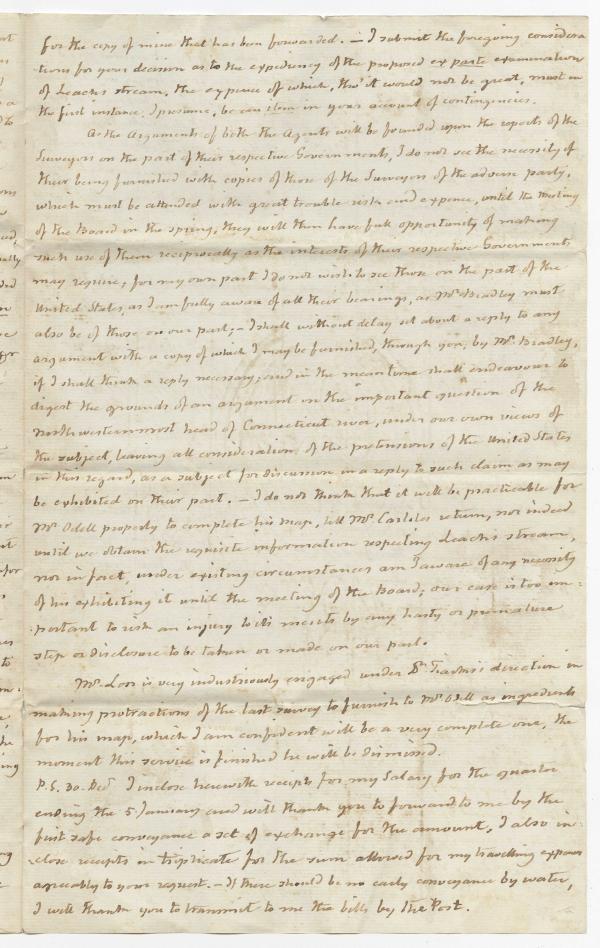 for the copy of mine that has been forwarded. — I submit the foregoing considera
tions for your decision as to the expediency of the proposed ex parte examination
of Leach's stream, the expence of which, tho' it would not be great, must in
the first instance, I presume, be an item in your account of contingencies.
As the Arguments of both the Agents will be founded upon the reports of the
Surveyors on the part of their respective Governments, I do not see the necessity of
their being furnished with copies of those of the Surveyors of the adverse party,
which must be attended with great trouble risk and expence, until the meeting
of the Board in the spring; they will then have full opportunity of making
such use of them reciprocally as the interests of their respective Governments
may require; for my own part I do not wish to see those on the part of the
United States, as I am fully aware of all their bearings, as Mr. Bradley must
also be of those on our part; – I shall without delay set about a reply to any
argument with a copy of which I may be furnished, through you, by Mr. Bradley,
if I shall think a reply necessary; and in the mean time shall endeavour to
digest the grounds of an argument on the important question of the
Northwesternmost head of Connecticut river, under our own views of
the subject, leaving all consideration of the pretensions of the United States
in this regard, as a subject for discussion in a reply to such claim as may
be exhibited on their part. — I do not think that it will be practicable for
Mr. Odell properly to complete his map, till Mr. Carliles return, nor indeed
until we obtain the requisite information respecting Leach's stream,
nor in fact, under existing circumstances am I aware of any necessity
of his exhibiting it until the meeting of the Board; our case is too im-
portant to risk an injury to it's merits by any hasty or premature
step or disclosure to be taken or made on our part.
Mr. Loss is very industriously engaged under Dr. Tiarks's direction in
making protractions of the last survey to furnish to Mr. Odell as ingredients
for his map, which I am confident will be a very complete one, the
moment this service is finished he will be dismissed.
P.S. 30. Decr. I inclose herewith receipts for my Salary for the quarter
ending the 5 January and will thank you to forward to me by the
first safe conveyance a set of exchange for the amount, I also in-
close receipts in triplicate for the sum allowed for my travelling expences
agreeably to your request. — If there should be no early conveyance by water,
I will thank you to transmit to me the bills by the Post.